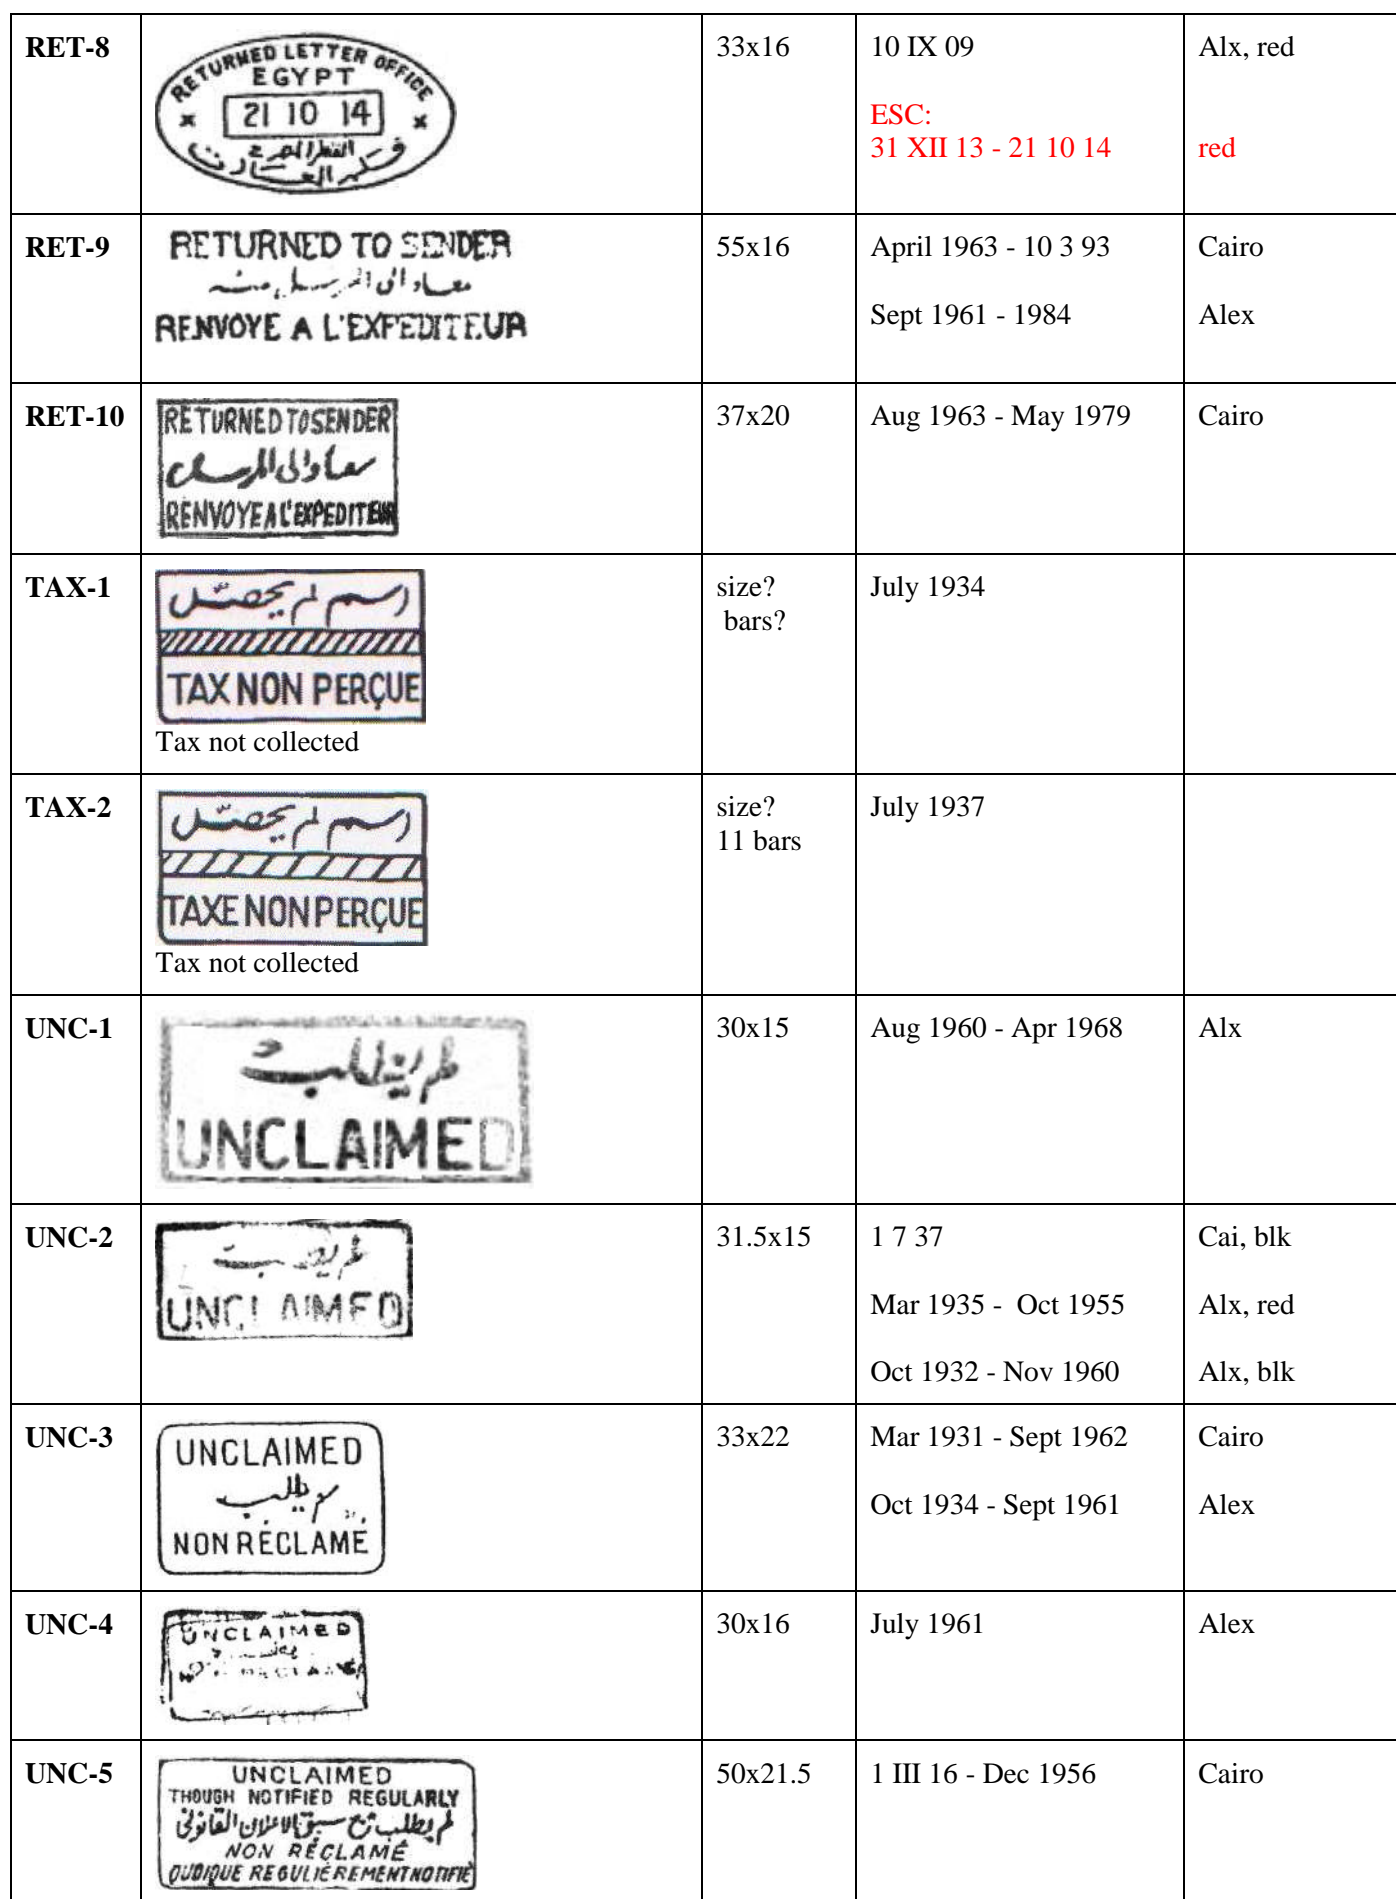 RET-8
RETURNED LETTER OFFICE
EGYPT
21 10 14
القطر المصرى
33x16
10 IX 09
Alx, red
ESC:
31 XII 13 - 21 10 14
red
RET-9
RETURNED TO SENDER
معاد الى المرسل منه
RENVOYE A L'EXPEDITEUR
55x16
April 1963 - 10 3 93
Cairo
Sept 1961 - 1984
Alex
RET-10
RETURNED TO SENDER
معاد الى المرسل
RENVOYE A L'EXPEDITEUR
37x20
Aug 1963 - May 1979
Cairo
TAX-1
رسم لم يحصّل
TAX NON PERÇUE
Tax not collected
size?
bars?
July 1934
TAX-2
رسم لم يحصّل
TAXE NON PERÇUE
Tax not collected
size?
11 bars
July 1937
UNC-1
لم يطلب
UNCLAIMED
30x15
Aug 1960 - Apr 1968
Alx
UNC-2
لم يطلب
UNCLAIMED
31.5x15
1 7 37
Cai, blk
Mar 1935 - Oct 1955
Alx, red
Oct 1932 - Nov 1960
Alx, blk
UNC-3
UNCLAIMED
لم يطلب
NON RÉCLAMÉ
33x22
Mar 1931 - Sept 1962
Cairo
Oct 1934 - Sept 1961
Alex
UNC-4
UNCLAIMED
30x16
July 1961
Alex
UNC-5
UNCLAIMED
THOUGH NOTIFIED REGULARLY
لم يطلب مع سبق الاعلان القانونى
NON RÉCLAMÉ
QUOIQUE REGULIÈREMENT NOTIFIÉ
50x21.5
1 III 16 - Dec 1956
Cairo